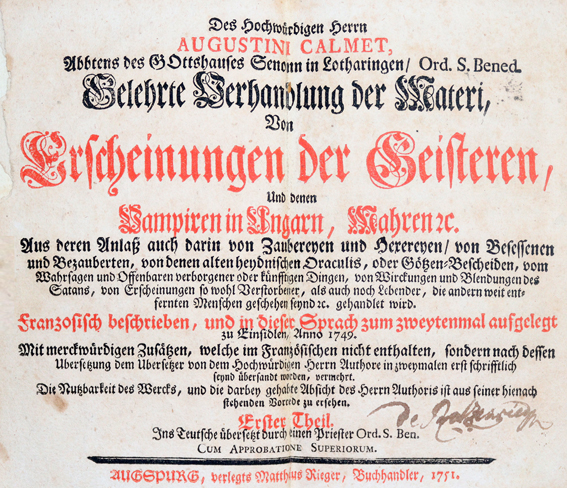 Des Hochwürdigen Herrn
AUGUSTINI CALMET,
Abbtens des GOttshauses Senonn in Lotharingen/ Ord. S. Bened.
Gelehrte Verhandlung der Materi,
Von
Erscheinungen der Geisteren,
Und denen
Vampiren in Ungarn, Mahren ꝛc.
Aus deren Anlaß auch darin von Zaubereyen und Hexereyen/ von Besessenen
und Bezauberten, von denen alten heydnischen Oraculis, oder Götzen-Bescheiden, vom
Wahrsagen und Offenbaren verborgener oder künfftigen Dingen, von Würckungen und Blendungen des
Satans, von Erscheinungen so wohl Verstorbener, als auch noch Lebender, die andern weit ent-
fernten Menschen geschehen seynd ꝛc. gehandlet wird.
Französisch beschrieben, und in dieser Sprach zum zweytenmal aufgelegt
zu Einsidlen, Anno 1749.
Mit merckwürdigen Zusätzen, welche im Französischen nicht enthalten, sondern nach dessen
Ubersetzung dem Ubersetzer von dem Hochwürdigen Herrn Authore in zweymalen erst schrifftlich
seynd übersandt worden, vermehrt.
Die Nutzbarkeit des Wercks, und die darbey gehabte Absicht des Herrn Authoris ist aus seiner hienach
stehenden Vorrede zu ersehen.
Erster Theil.
Ins Teutsche übersetzt durch einen Priester Ord. S. Ben.
CUM APPROBATIONE SUPERIORUM.
AUGSPURG, verlegts Matthäus Rieger, Buchhandler, 1751.